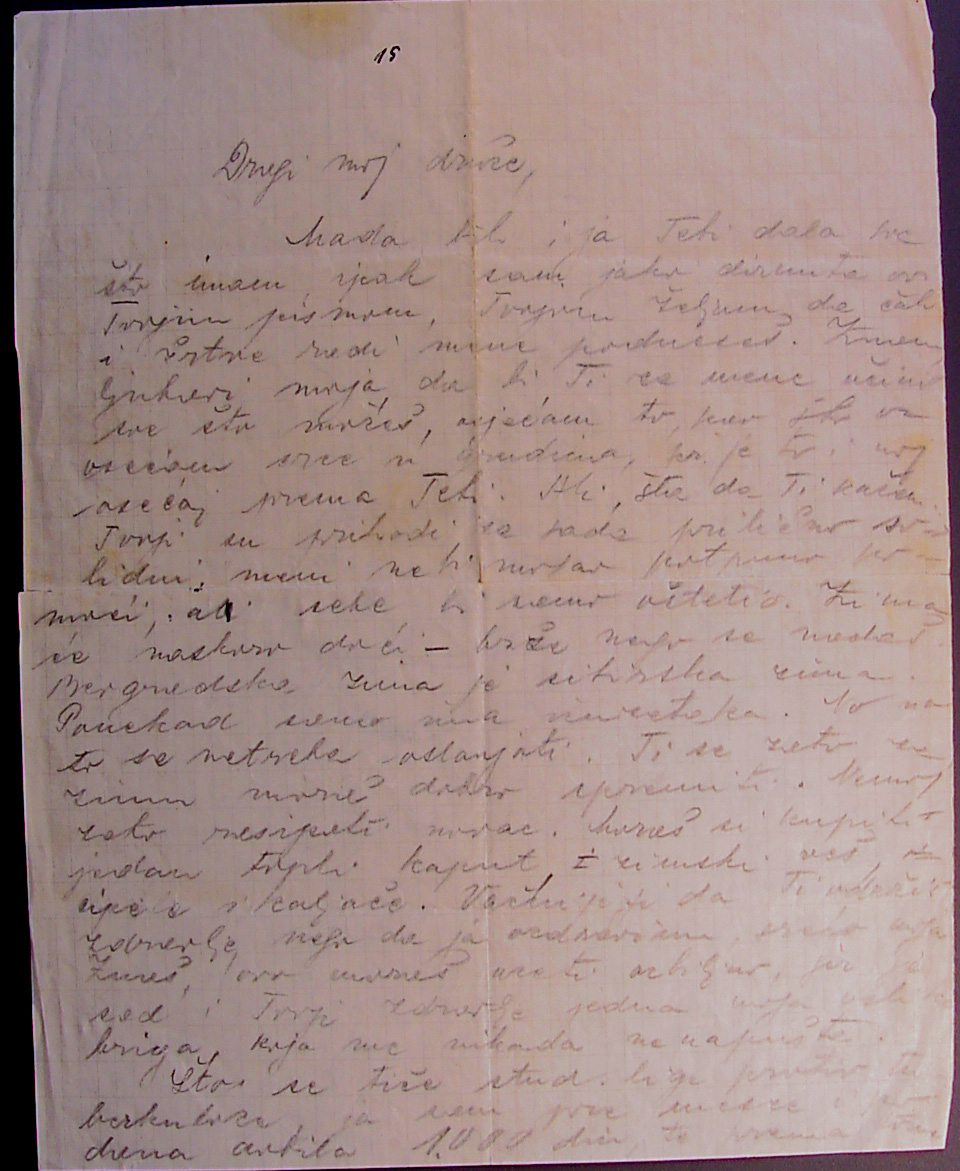 15
Dragi moj druže,
Mada bih i ja Tebi dala sve
što imam, ipak sam jako dirnuta ovim
Tvojim pismom, Tvojom željom, da čak
i žrtve radi mene podneseš. Znam,
ljubavi moja, da bi Ti za mene učinio
sve što možeš, osjećam to, kao što
osećam srce u grudima, jer je to i moj
osećaj prema Tebi. Ali, šta da Ti kažem.
Tvoji su prihodi za sada prilično so-
lidni, meni nebi mogao potpuno po-
moći, ali sebe bi samo oštetio. Zima
će naskoro doći – brže nego se nadaš.
Beogradska zima je sibirska zima.
Ponekad samo ima izuzetaka. No na
to se netreba oslanjati. Ti se zato za
zimu moraš dobro spremiti. Nemoj
zato rasipati novac. Moraš si kupiti
jedan topli kaput, i zimski veš,
cipele i kaljače. Važnije je da Ti održiš
zdravlje nego da ja ozdravim, srećo moja.
Znaš, ovo moraš uzeti ozbiljno, jer je
sad i Tvoje zdravlje jedna moja velika
briga, koja me nikada ne napušta.
Što se tiče stud. lige protiv tu-
berkuloze, ja sam pre mesec i po
dana dobila 1.000 din, te prema tome